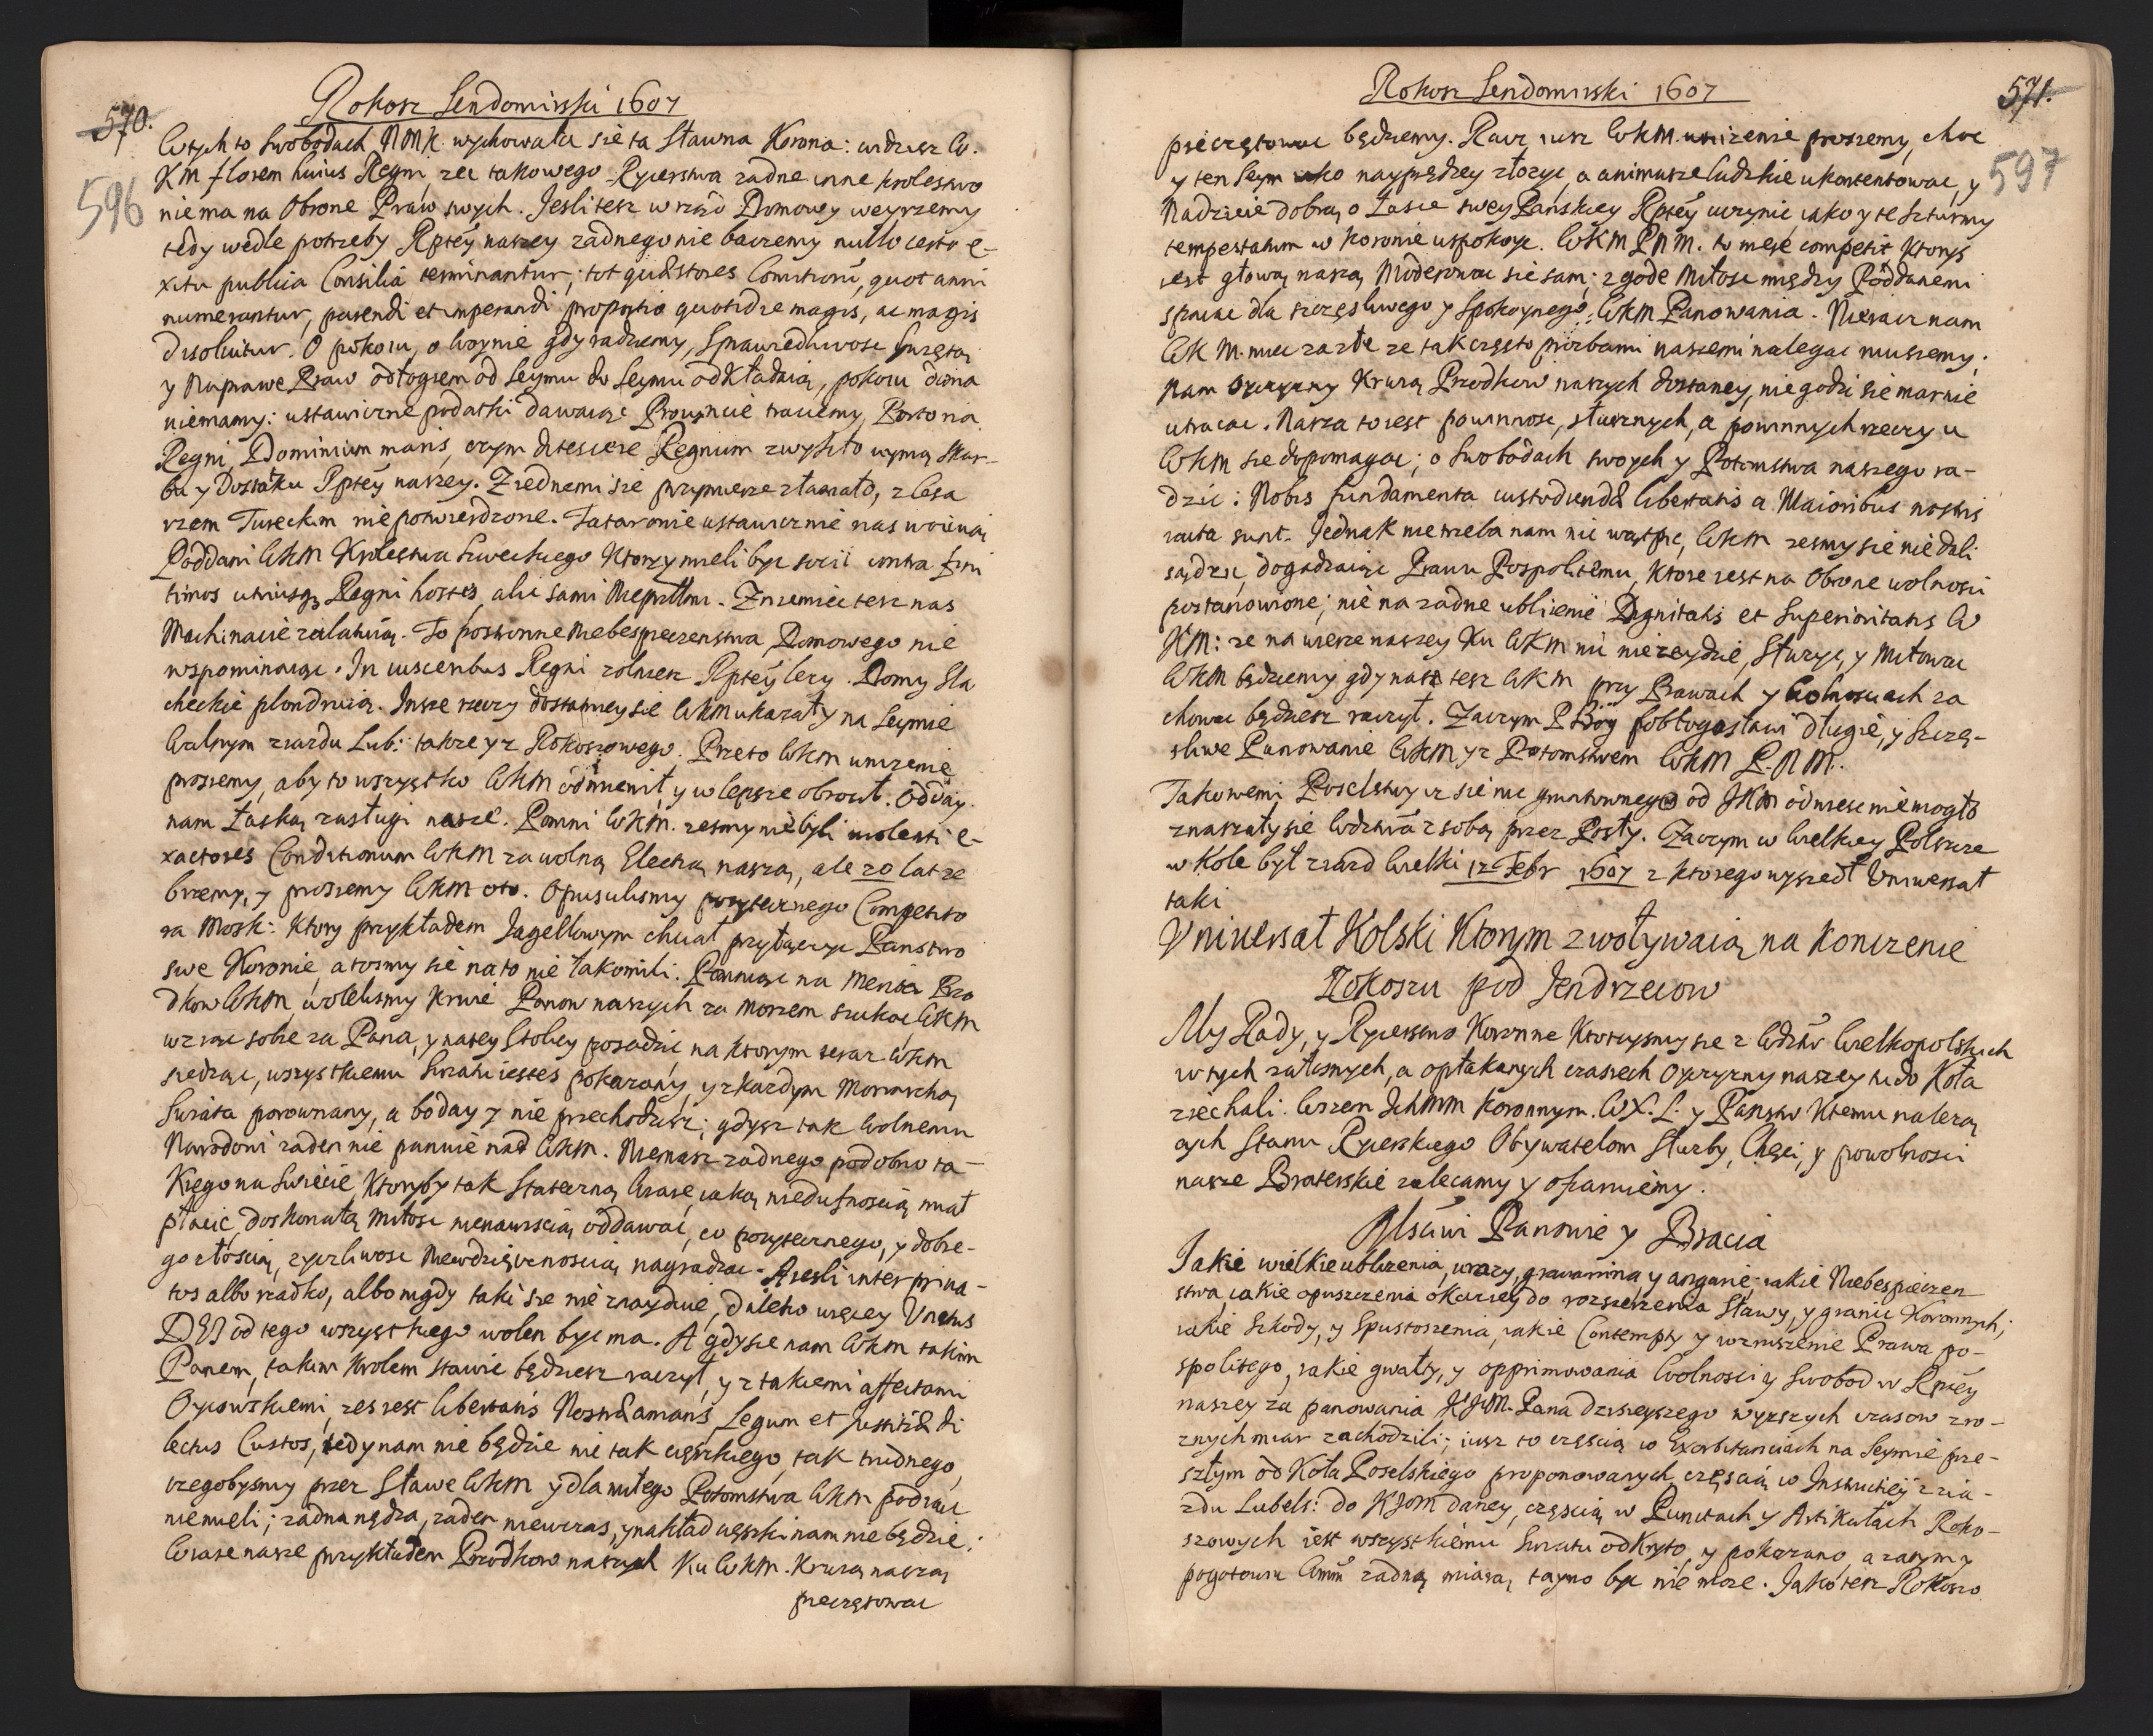 Rokosz Sendomirski 1607
570.
596
Wtych to Swobodach NMK. wychowała się ta Sławna Korona: widzisz W.
KM florem huius Regni, zec takowego Rycerstwa zadne inne krolestwo
niema na Obrone Praw swych. Jesli tesz w rząd Domowy weyrzemy
tedy wedle potrzeby Rptey naszey zadnego nie baczemy nullo certo e-
xitu publica Consilia terminantur; tot quæstores Comitiorũ, quot anni
numerantur, parendi et imperandi proportio quotidie magis, ac magis
disoluitur. O pokoiu, o Woynie gdy radziemy, Sprawiedliwosc Swiętą
y Naprawe Praw odłogiem od Seymu do Seymu odkładaią, pokoiu doma
niemamy: ustawiczne podatki dawaiąc Prowincie traciemy, Portoria
Regni, Dominium maris, czym ditescere Regnum zwykło uymą Skar-
bu y Dostatku Rptey naszey. Z iednemi sie przymierze złamało, z Cesa
rzem Tureckim nie potwierdzone. Tatarowie ustawicznie nas woiuią
Poddani WKM Krolestwa Szweckiego Ktorzy mieli byc socii contra fini
timos utriusq Regni hostes, alic sami Nieprzłmi. Z niemiec tesz nas
Machinacie zalatuią. To postronne Niebespieczenstwa Domowego nie
wspominaiąc. In visceribus Regni zołnierz Rptey lezy. Domy Sla
checkie plondruią. Insze rzeczy dostatniey sie WKM ukazały na Seymie
Walnym z iazdu Lub: takze y z Rokoszowego. Przeto WKM unizenie
prosiemy, aby to wszystko WKM odmienił, y w lepsze obrocił. Odday
nam Łaską zasługi nasze. Pomni WKM. zesmy nie byli violenti e-
xactores Conditionum WKM za wolną Electią naszą, ale 20 lat ze
brzemy, y prosiemy WKM oto. Opuscilismy pozytecznego Competito
ra Mosk: Ktory przykładem Jagellowym chciał przyłączyc Panstwo
swe Koronie, a tosmy sie na to nie łakomili. Pomniąc na Merita Prze
dkow WKM, wolelismy krwie Panow naszych za morzem szukac WKM
wziąc sobie za Pana, y na tey Stolicy posadzic na ktorym teraz WKM
siedząc, wszystkiemu Swiatu iestes pokazany, y z kazdym Monarchą
Swiata porownany, a boday y nie przechodzisz; gdysz tak Wolnemu
Narodowi zaden nie panuie nad WKM. Niemasz zadnego podobno ta-
kiego na Swiecie, Ktoryby tak Stateczną Wiarę, iaką niedufnoscią miał
płacic, doskonałą miłosc nienawiscią oddawac, co pozytecznego, y dobre-
go złoscią, zyczliwosc Niewdzięcznoscią nagradzac. A iesli inter priua-
tos albo rzadko, albo nigdy taki sie nie znayduie, daleko więcey Vnctus
DEI od tego wszystkiego wolen byc ma. A gdy sie nam WKM takim
Panem, takim krolem stawic będziesz raczył, y z takiemi affectami
Oycowskiemi, zes iest libertatis Nostræ amans, Legum et Justitiæ di
lectus Custos, tedy nam nie będzie nic tak ciężkiego, tak trudnego,
czegobysmy przez Sławe WKM y dla miłego Potomstwa WKM podiąc
niemieli; zadna nędza, zaden niewczas, y nakład cięszki nam nie będzie.
Wiare nasze przykładem Przodkow naszych Ku WKM. Krwią naszą
pieczętowac

Rokosz Sendomirski 1607
571.
597
pieczętowac będziemy. Racz iusz WKM. unizenie prosiemy, choc
y ten Seym iako nayprędzey złozyc, a animusze ludzkie ukontentowac, y
Nadzieie dobrą o Łasce swey Panskiey Rptey uczynic, iako y te szturmy
tempestatum w koronie uspokoic. WKM PNM. to męię competit Ktorys
iest głową naszą Moderowac sie sam; zgode Miłosc między Poddanemi
sprawic dla szczęsliwego y Spokoynego WKM Panowania. Nieracz nam
WKM. miec za złe ze tak często prozbami naszemi nalegac musiemy.
Nam Oyczyzny Krwią Przodkow naszych dostaney, nie godzi sie marnie
utracac. Nasza to iest powinnosc, słusznych, a powinnych rzeczy u
WKM sie dopomagac; o Swobodach swoych y Potomstwa naszego ra-
dzic: Nobis fundamenta custodiendæ libertatis a Maioribus nostris
iacta sunt. Jednak nie trzeba nam nic wątpic, WKM zesmy sie nie dali
sądzic, dogadzaiąc Prawu Pospolitemu, Ktore iest na Obrone wolnosci
postanowione; nic na zadne ublizenie Dignitatis et Superioritatis W
KM: ze na wierze naszey Ku WKM nic nie zeydzie, Słuzyc, y miłowac
WKM będziemy gdy nasz tesz WKM przy Prawach y Wolnosciach za
chowac będziesz raczył. Zaczym P Bóg pobłogosławi długie, y Szczę-
sliwe Panowanie WKM, y z Potomstwem WKM P.N M.
Takowemi Poselstwy iz sie nic gruntownego od JKM odniesc nie mogło
znaszały sie Wdztwa z sobą przez Posły. Zaczym w Wielkiey Polszcze
w Kole był ziazd Wielki 12 Febr 1607 z ktorego wyszedł Vniwersał
taki
Vniwersał Kolski Ktorym zwoływaią na konczenie
Rokoszu pod Jendrzeiow
My Rady, y Rycerstwo Koronne Ktorzysmy sie z Wdztw Wielkopolskich
w tych załosnych, a opłakanych czasiech Oyczyzny naszey tu do Koła
ziechali. Wszem Jchmm koronnym. WX. L. y Panstw Ktemu nalezą
cych Stanu Rycerskiego Obywatelom Słuzby, Chęci, y powolnosci
nasze Braterskie zalecamy y ofiaruiemy.
Msciwi Panowie y Bracia
Jakie wielkie ublizenia, urazy, grawamina y angarie; iakie Niebespieczen
stwa, iakie opuszczenia okaziey do rozszerzenia Sławy, y granic Koronnych;
iakie Szkody, y Spustoszenia, iakie Contempty y wzruszenie Prawa po-
spolitego, iakie gwałty, y opprimowania Wolnosci y Swobod w Rptey
naszey za panowania KJM. Pana dzisieyszego wyszych czasow zro-
znych miar zachodzili; iusz to częscią w Exorbitanciach na Seymie prze-
szłym od Koła Poselskiego proponowanych, częscią w Instrukciey z zia-
zdu Lubels: do KJoM daney, częscią w Punctach y Artikułach Roko-
szowych iest wszystkiemu Swiatu odkryto, y pokazano, a zatym y
pogotowiu Wmm zadną miarą tayno byc nie moze. Jako tesz Rokoszo